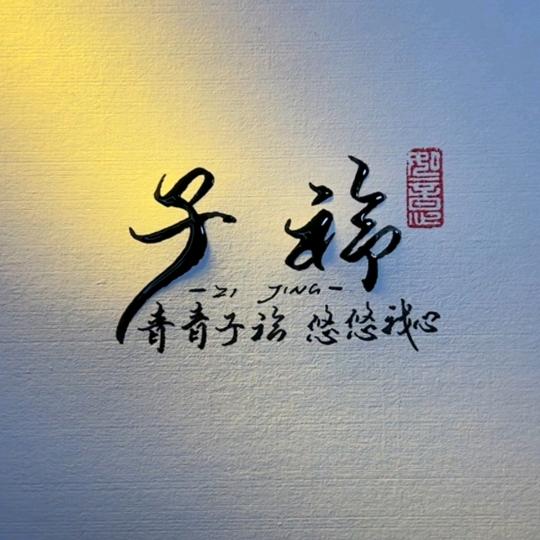 子 衿
-ZI JING-
青青子衿 悠悠我心